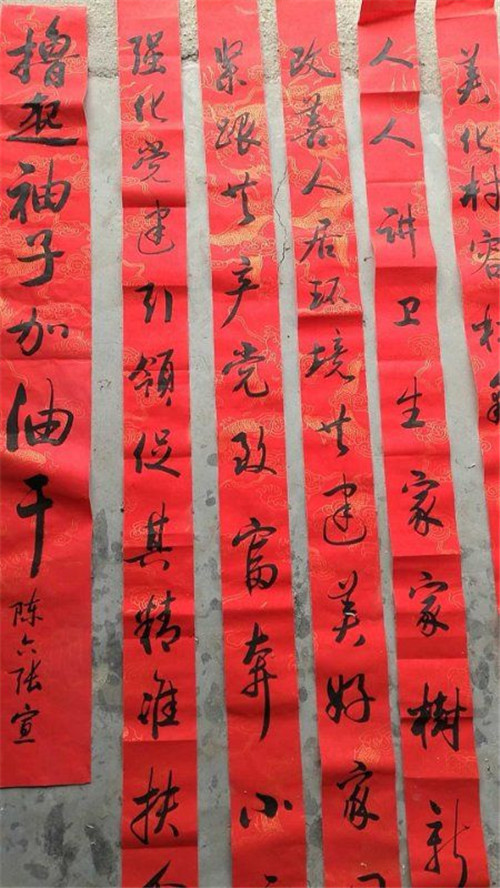 美化村容村
人人讲卫生家家树新
改善人居环境共建美好家
紧跟共产党致富奔小
强化党建引领促其精准扶
撸起袖子加油干
陈六张宣